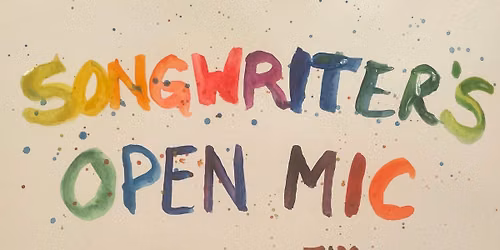 SONGWRITER'S
OPEN MIC